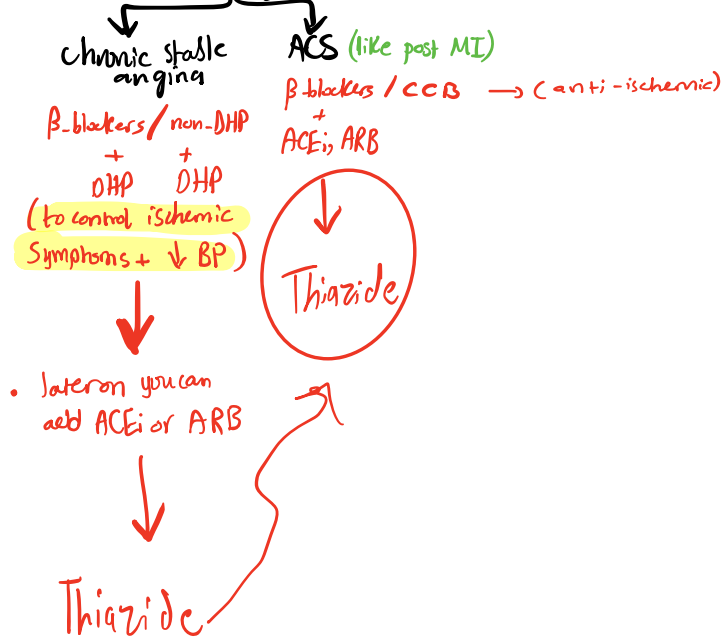 chronic stable
angina
β-blockers / non-DHP
+ +
DHP DHP
(to control ischemic
Symptoms + ↓ BP)
• later on you can
add ACEi or ARB
Thiazide
ACS (like post MI)
β-blockers / CCB → (anti-ischemic)
+
ACEi, ARB
Thiazide